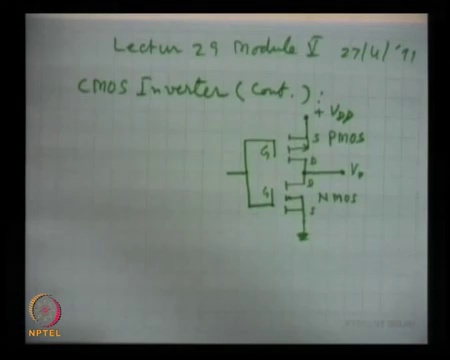 Lectur 29 Module V 27/4/'11
CMOS Inverter (Cont.):
+ VDD
S PMOS
G
D
Vo
D
G
NMOS
S
NPTEL